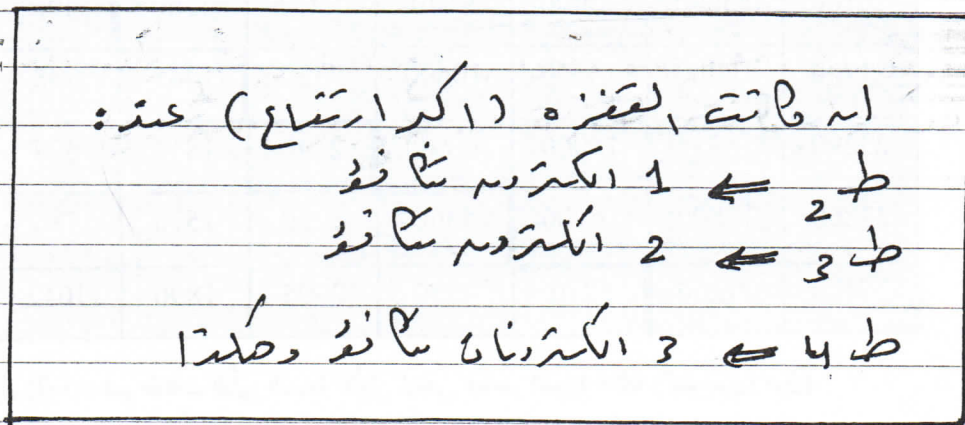 ان كانت القفزه (اكبر ارتفاع) عند:
ط2 ⇐ 1 الكترون تكافؤ
ط3 ⇐ 2 الكترون تكافؤ
ط4 ⇐ 3 الكترونات تكافؤ وهكذا